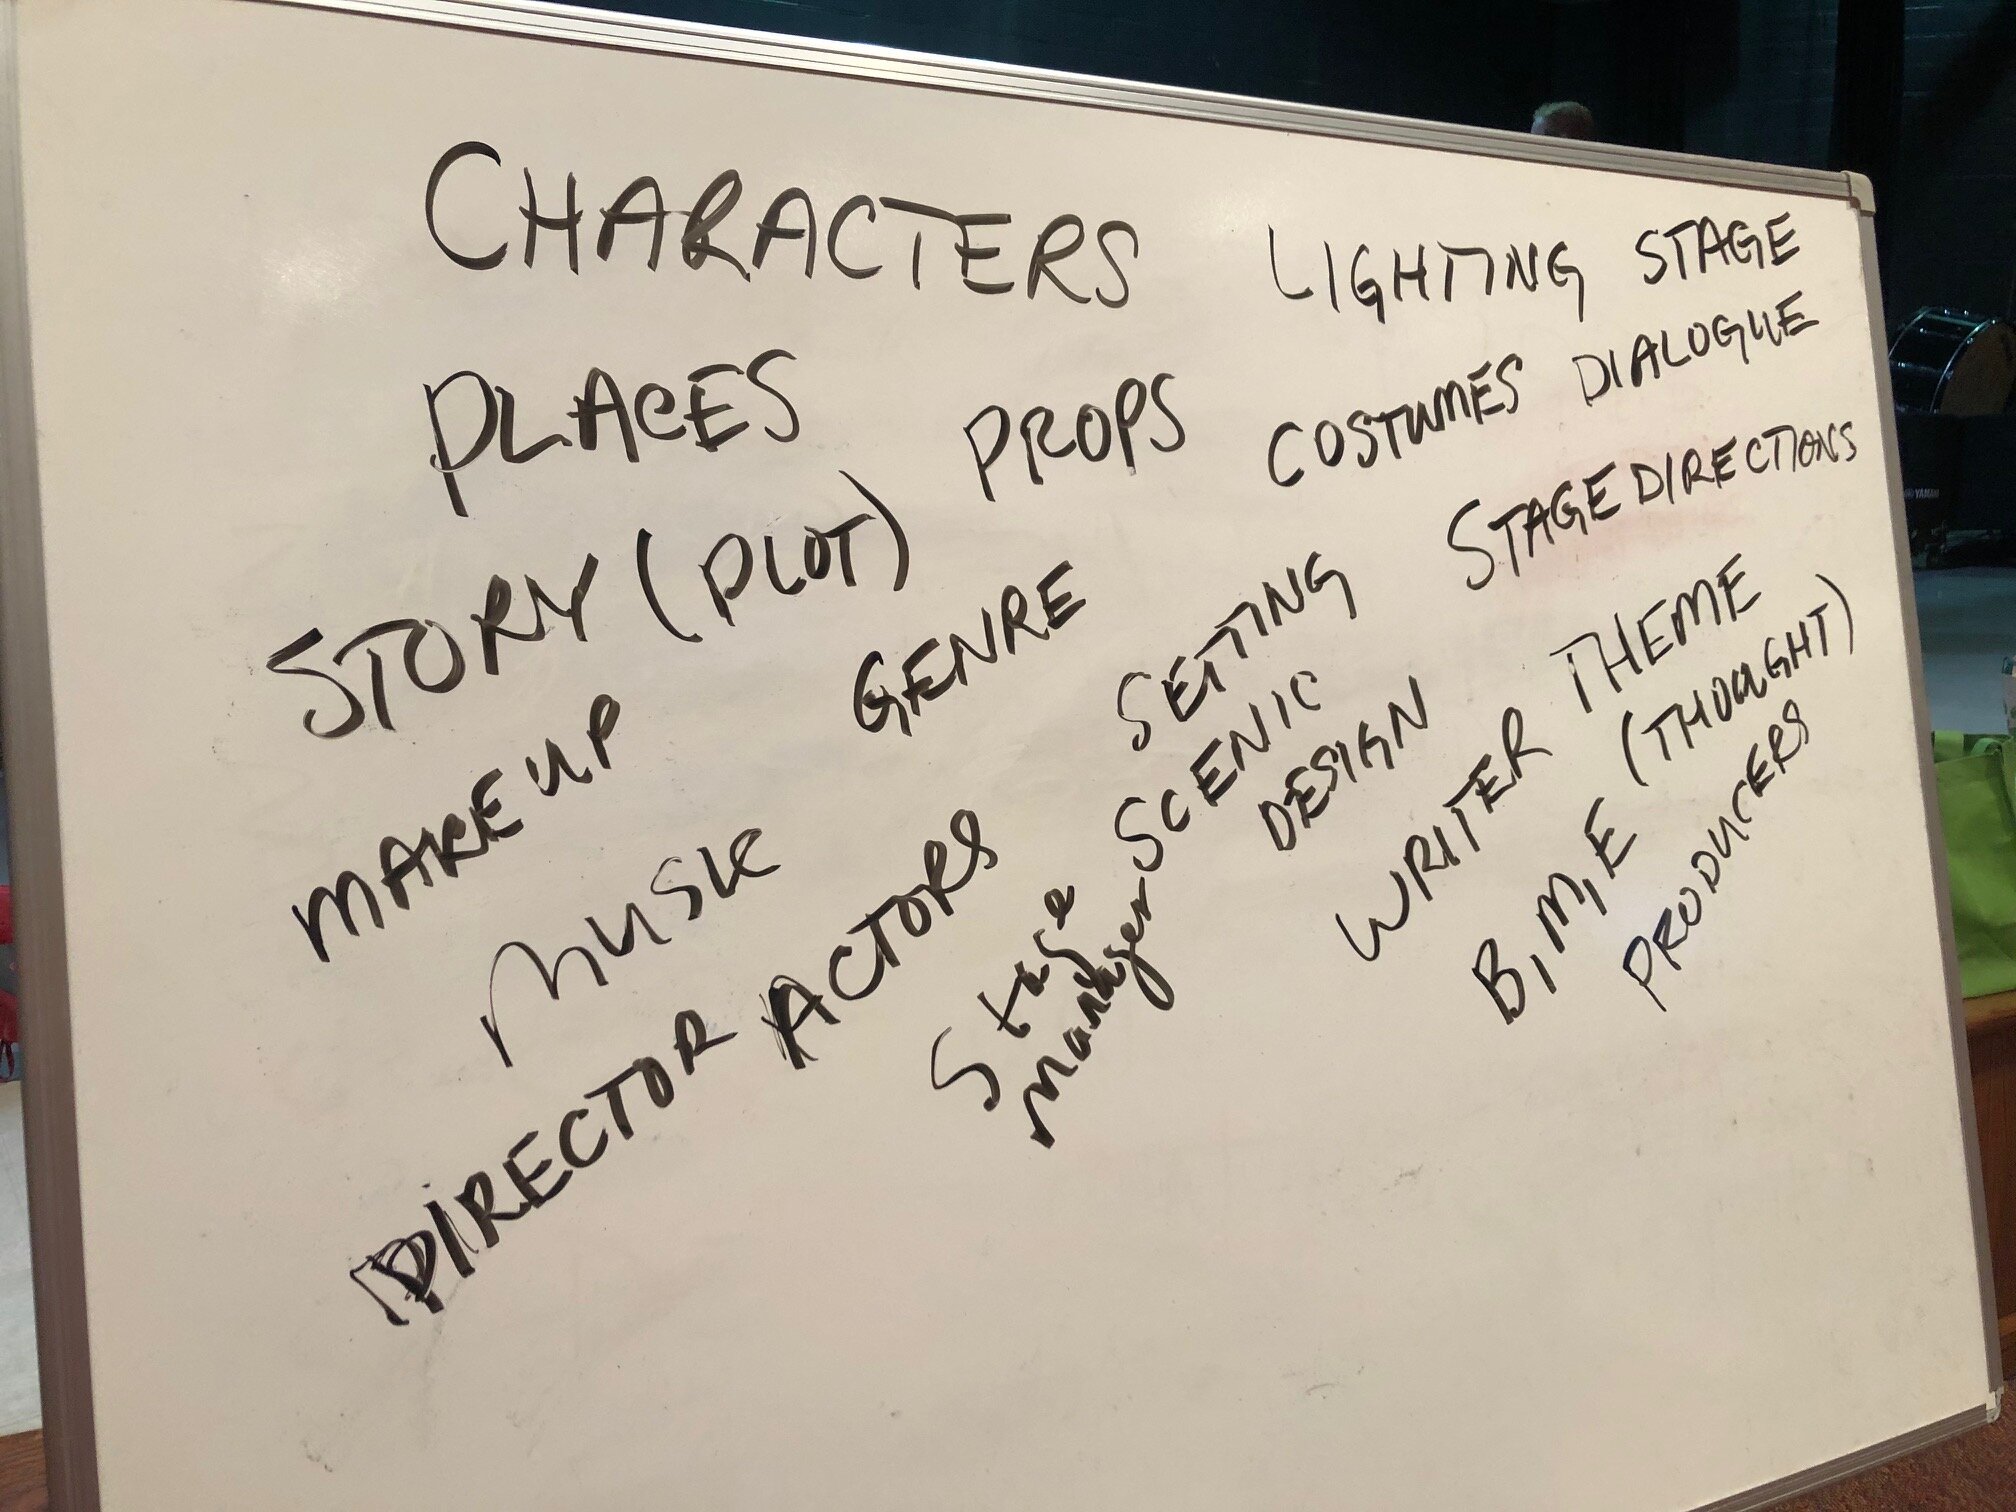 CHARACTERS LIGHTING STAGE
PLACES PROPS COSTUMES DIALOGUE
STORY (PLOT) GENRE SETTING STAGE DIRECTIONS
MAKEUP SCENIC DESIGN WRITER THEME (THOUGHT)
MUSIC Stage manager B, M, E PRODUCERS
DIRECTOR ACTORS
YAMAHA